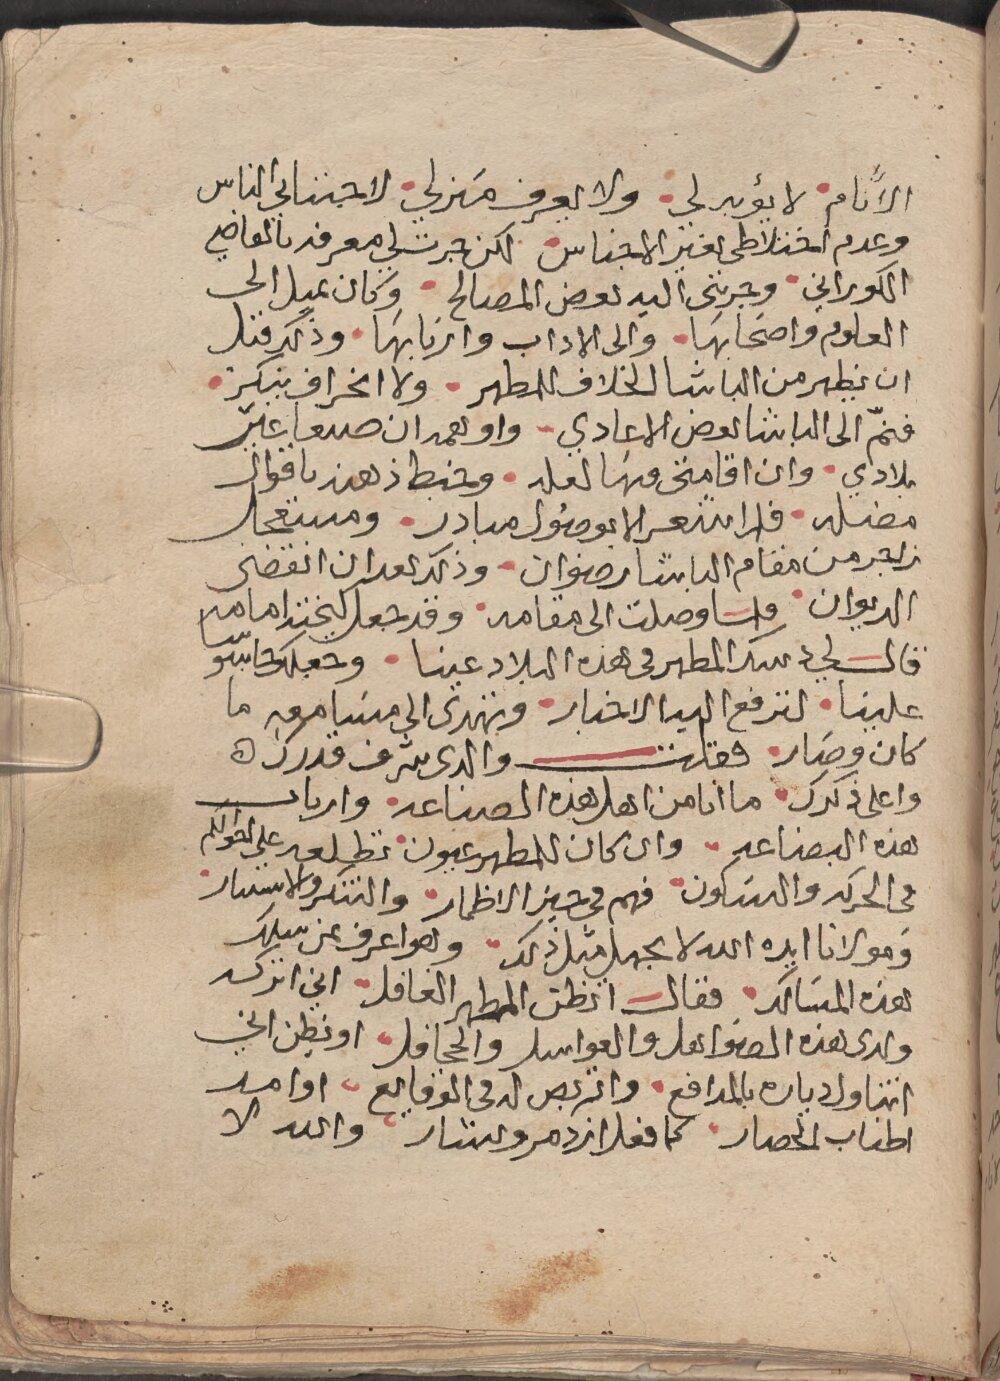 الأنام لا يؤبه لي ولا يعرف منزلي لاجتنابي الناس
وعدم اختلاطي بغير الاجناس لكن جرت لي معرفه بالقاضي
الكوراني وجرتني اليه بعض المصالح وكان يميل الى
العلوم واصحابها والى الاداب واربابها وذلك قبل
ان يظهر من الباشا الخلاف للمطهر ولا انحراف بنكر
فنمّ الى الباشا بعض الاعادي واوهمه ان صنعا غير
بلادي وان اقامتي فيها لعله وخبط ذهنه باقوال
مضله فلم اشعر الا بوصول مبادر ومستعجل
زاجر من مقام الباشا رضوان وذلك بعد ان انقضى
الديوان ولما وصلت الى مقامه وقد جعل امامه
قال لي المطهر في هذه البلاد عينا وجعلك جاسوسا
علينا لترفع اليه الاخبار وتهدي الى مسامعه ما
كان وصار فقلت والذي شرف قدرك
واعلى ذكرك ما انا من اهل هذه الصناعه وارباب
هذه البضاعه وان كان للمطهر عيون تطلعه على احوالكم
في الحركه والسكون فهم في حيز الاظمار والتنكر والاستتار
ومولانا ايده الله لا يجهل مثل ذلك وهو اعرف بمن سلك
هذه المسالك فقال ايظن المطهر الغافل اني اتركه
ولدي هذه الصواهل والعواسل والجحافل او يظن اني
اتناول دياره بالمدافع واتربص له في الوقايع او امد
اطناب الحصار كما فعل ازدمر والنشار والله لا